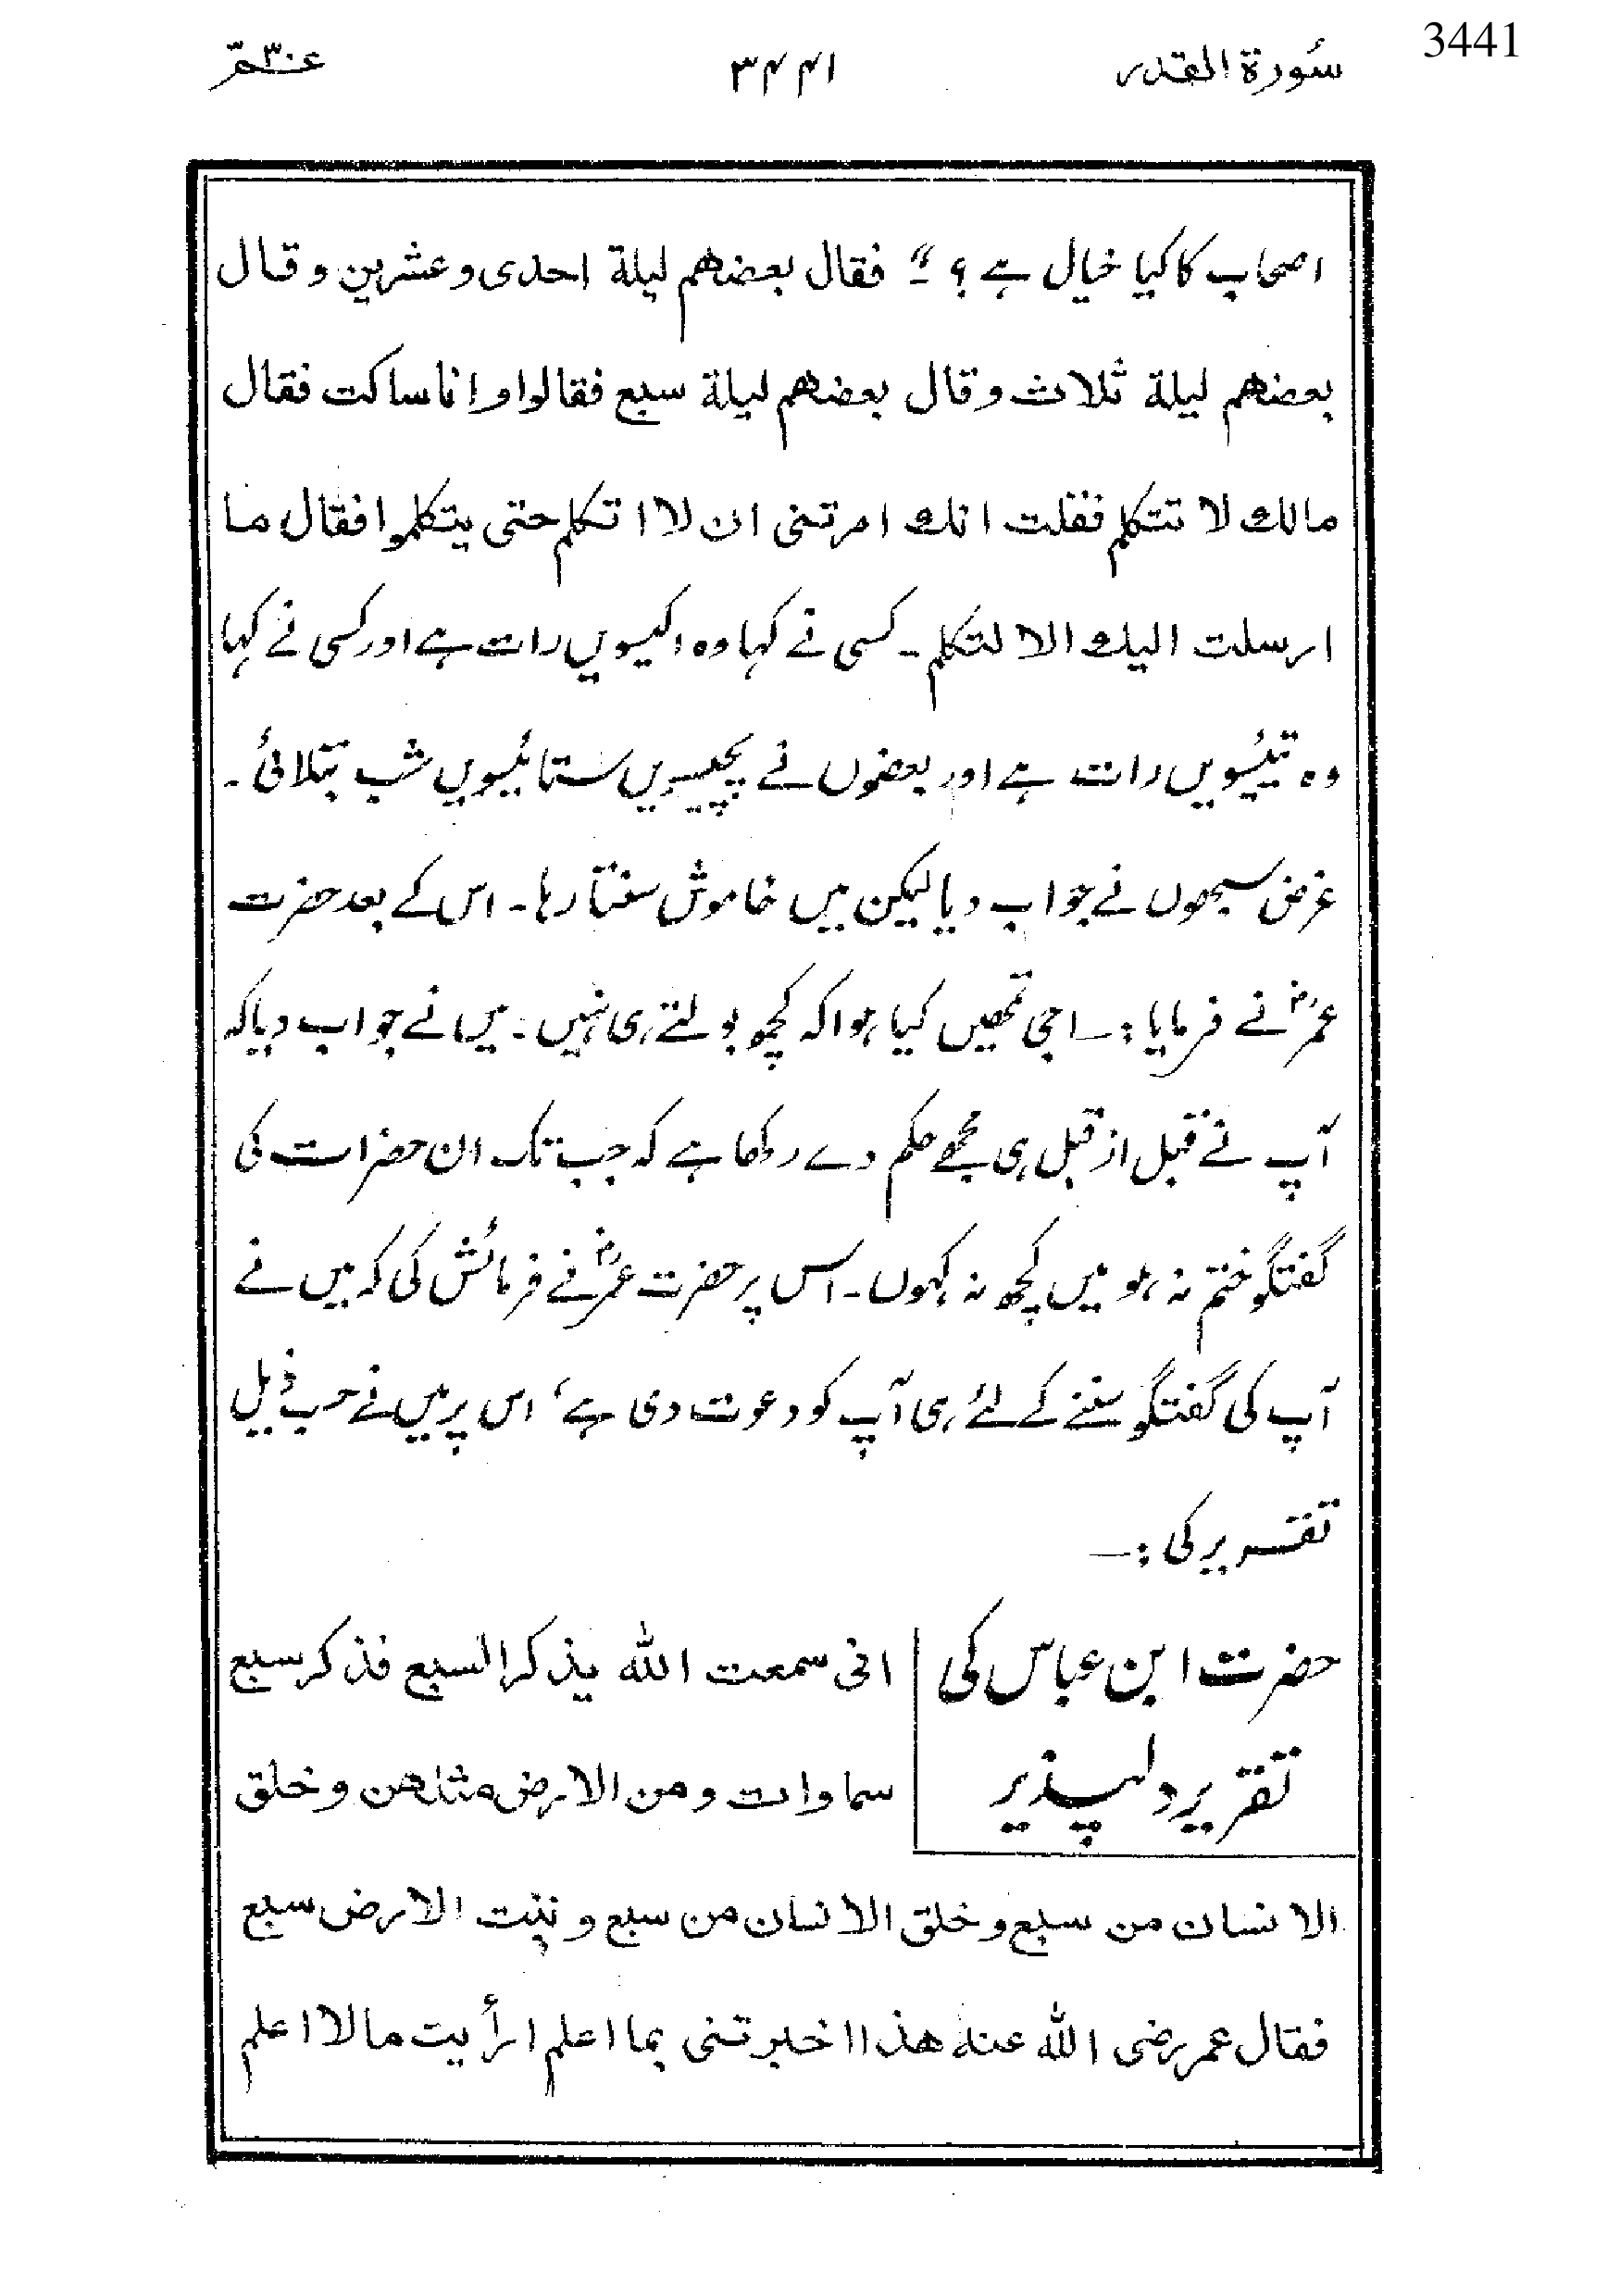 3441
سُورة القدر ۳۴۴۱ عمّ۳۰
اصحاب کا کیا خیال ہے؟" ۔ فقال بعضهم ليلة احدى وعشرين وقال
بعضهم ليلة ثلاث وقال بعضهم ليلة سبع فقالوا وانا ساكت فقال
مالك لا تتكلم فقلت انك امرتنى ان لا اتكلم حتى يتكلموا فقال ما
ارسلت اليك الا لتكلم ۔ کسی نے کہا وہ اکیسویں رات ہے اور کسی نے کہا
وہ تیئسویں رات ہے اور بعضوں نے پچیسویں ستائیسویں شب بتلائی ۔
غرض سبھوں نے جواب دیا لیکن میں خاموش سنتا رہا۔ اس کے بعد حضرت
عمرؓ نے فرمایا :۔ اجی تمھیں کیا ہوا کہ کچھ بولتے ہی نہیں ۔ میں نے جواب دیا کہ
آپ نے قبل از قبل ہی مجھے حکم دے رکھا ہے کہ جب تک ان حضرات کی
گفتگو ختم نہ ہو میں کچھ نہ کہوں ۔ اس پر حضرت عمرؓ نے فرمائش کی کہ میں نے
آپ کی گفتگو سننے کے لئے ہی آپ کو دعوت دی ہے، اس پر میں نے حسب ذیل
تقریر کی :۔
حضرت ابن عباس کی
تقریر دلپذیر
انى سمعت الله يذكر السبع فذكر سبع
سماوات ومن الارض مثلهن وخلق
الانسان من سبع وخلق الانسان من سبع ونبت الارض سبع
فقال عمر رضى الله عنه هذا اخبرتنى بما اعلم ارأيت مالا اعلم